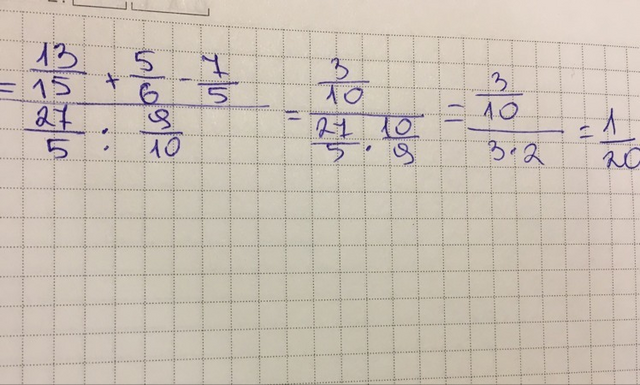 = (13/15 + 5/6 - 7/5) / (27/5 : 9/10) = (3/10) / (27/5 · 10/9) = (3/10) / (3·2) = 1/20